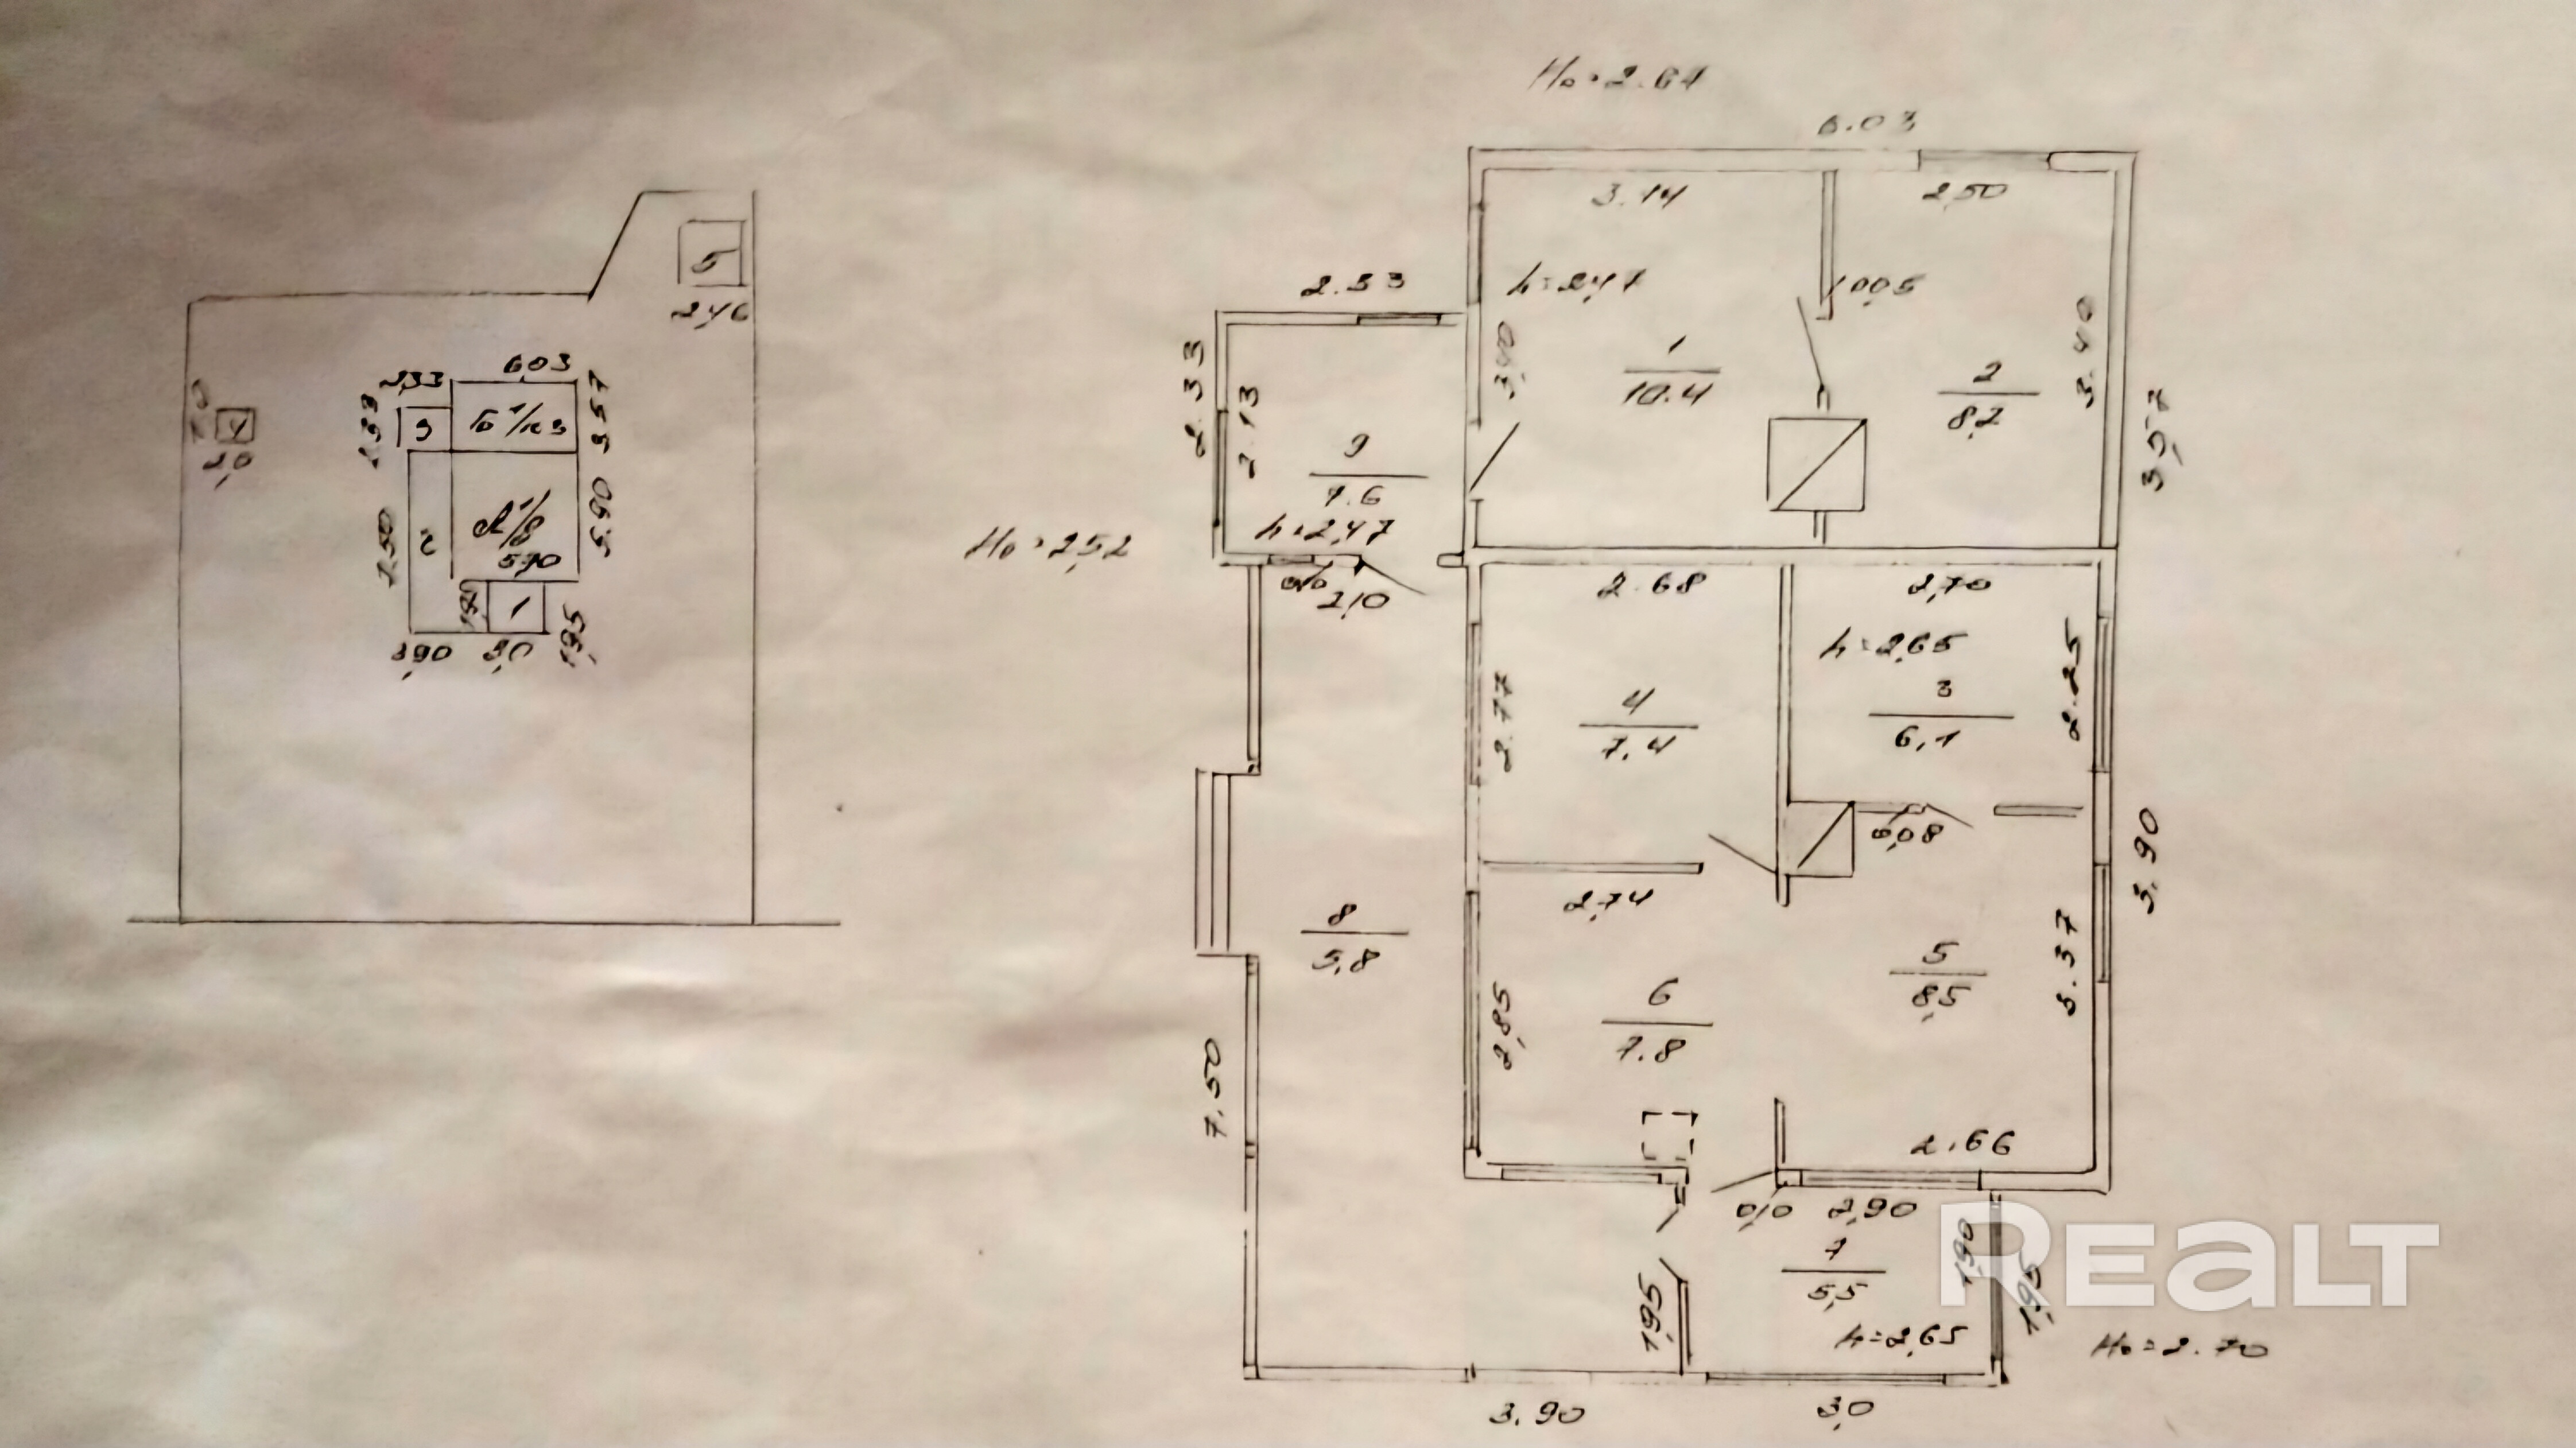 5
2,46
2,33
6,03
3
3,57
2,0
7,50
2
5,90
5,90
1
1,95
3,90
3,0
Н₀=2.64
6.03
3.14
2,50
h=2,47
3,40
1
10.4
2
8,2
3.40
3,57
2.33
2.13
9
7.6
h=2,47
Н₀=2,52
2,10
2.68
2,70
h=2,65
2.77
4
7.4
3
6,1
2.25
0,08
2,74
8
5,8
5
8,5
3.37
5,90
2,85
6
7.8
7.50
2.66
0,10
2,90
7
5,5
1,90
1,95
1,95
h=2,65
Н₀=2.70
3.90
3,0
REALT